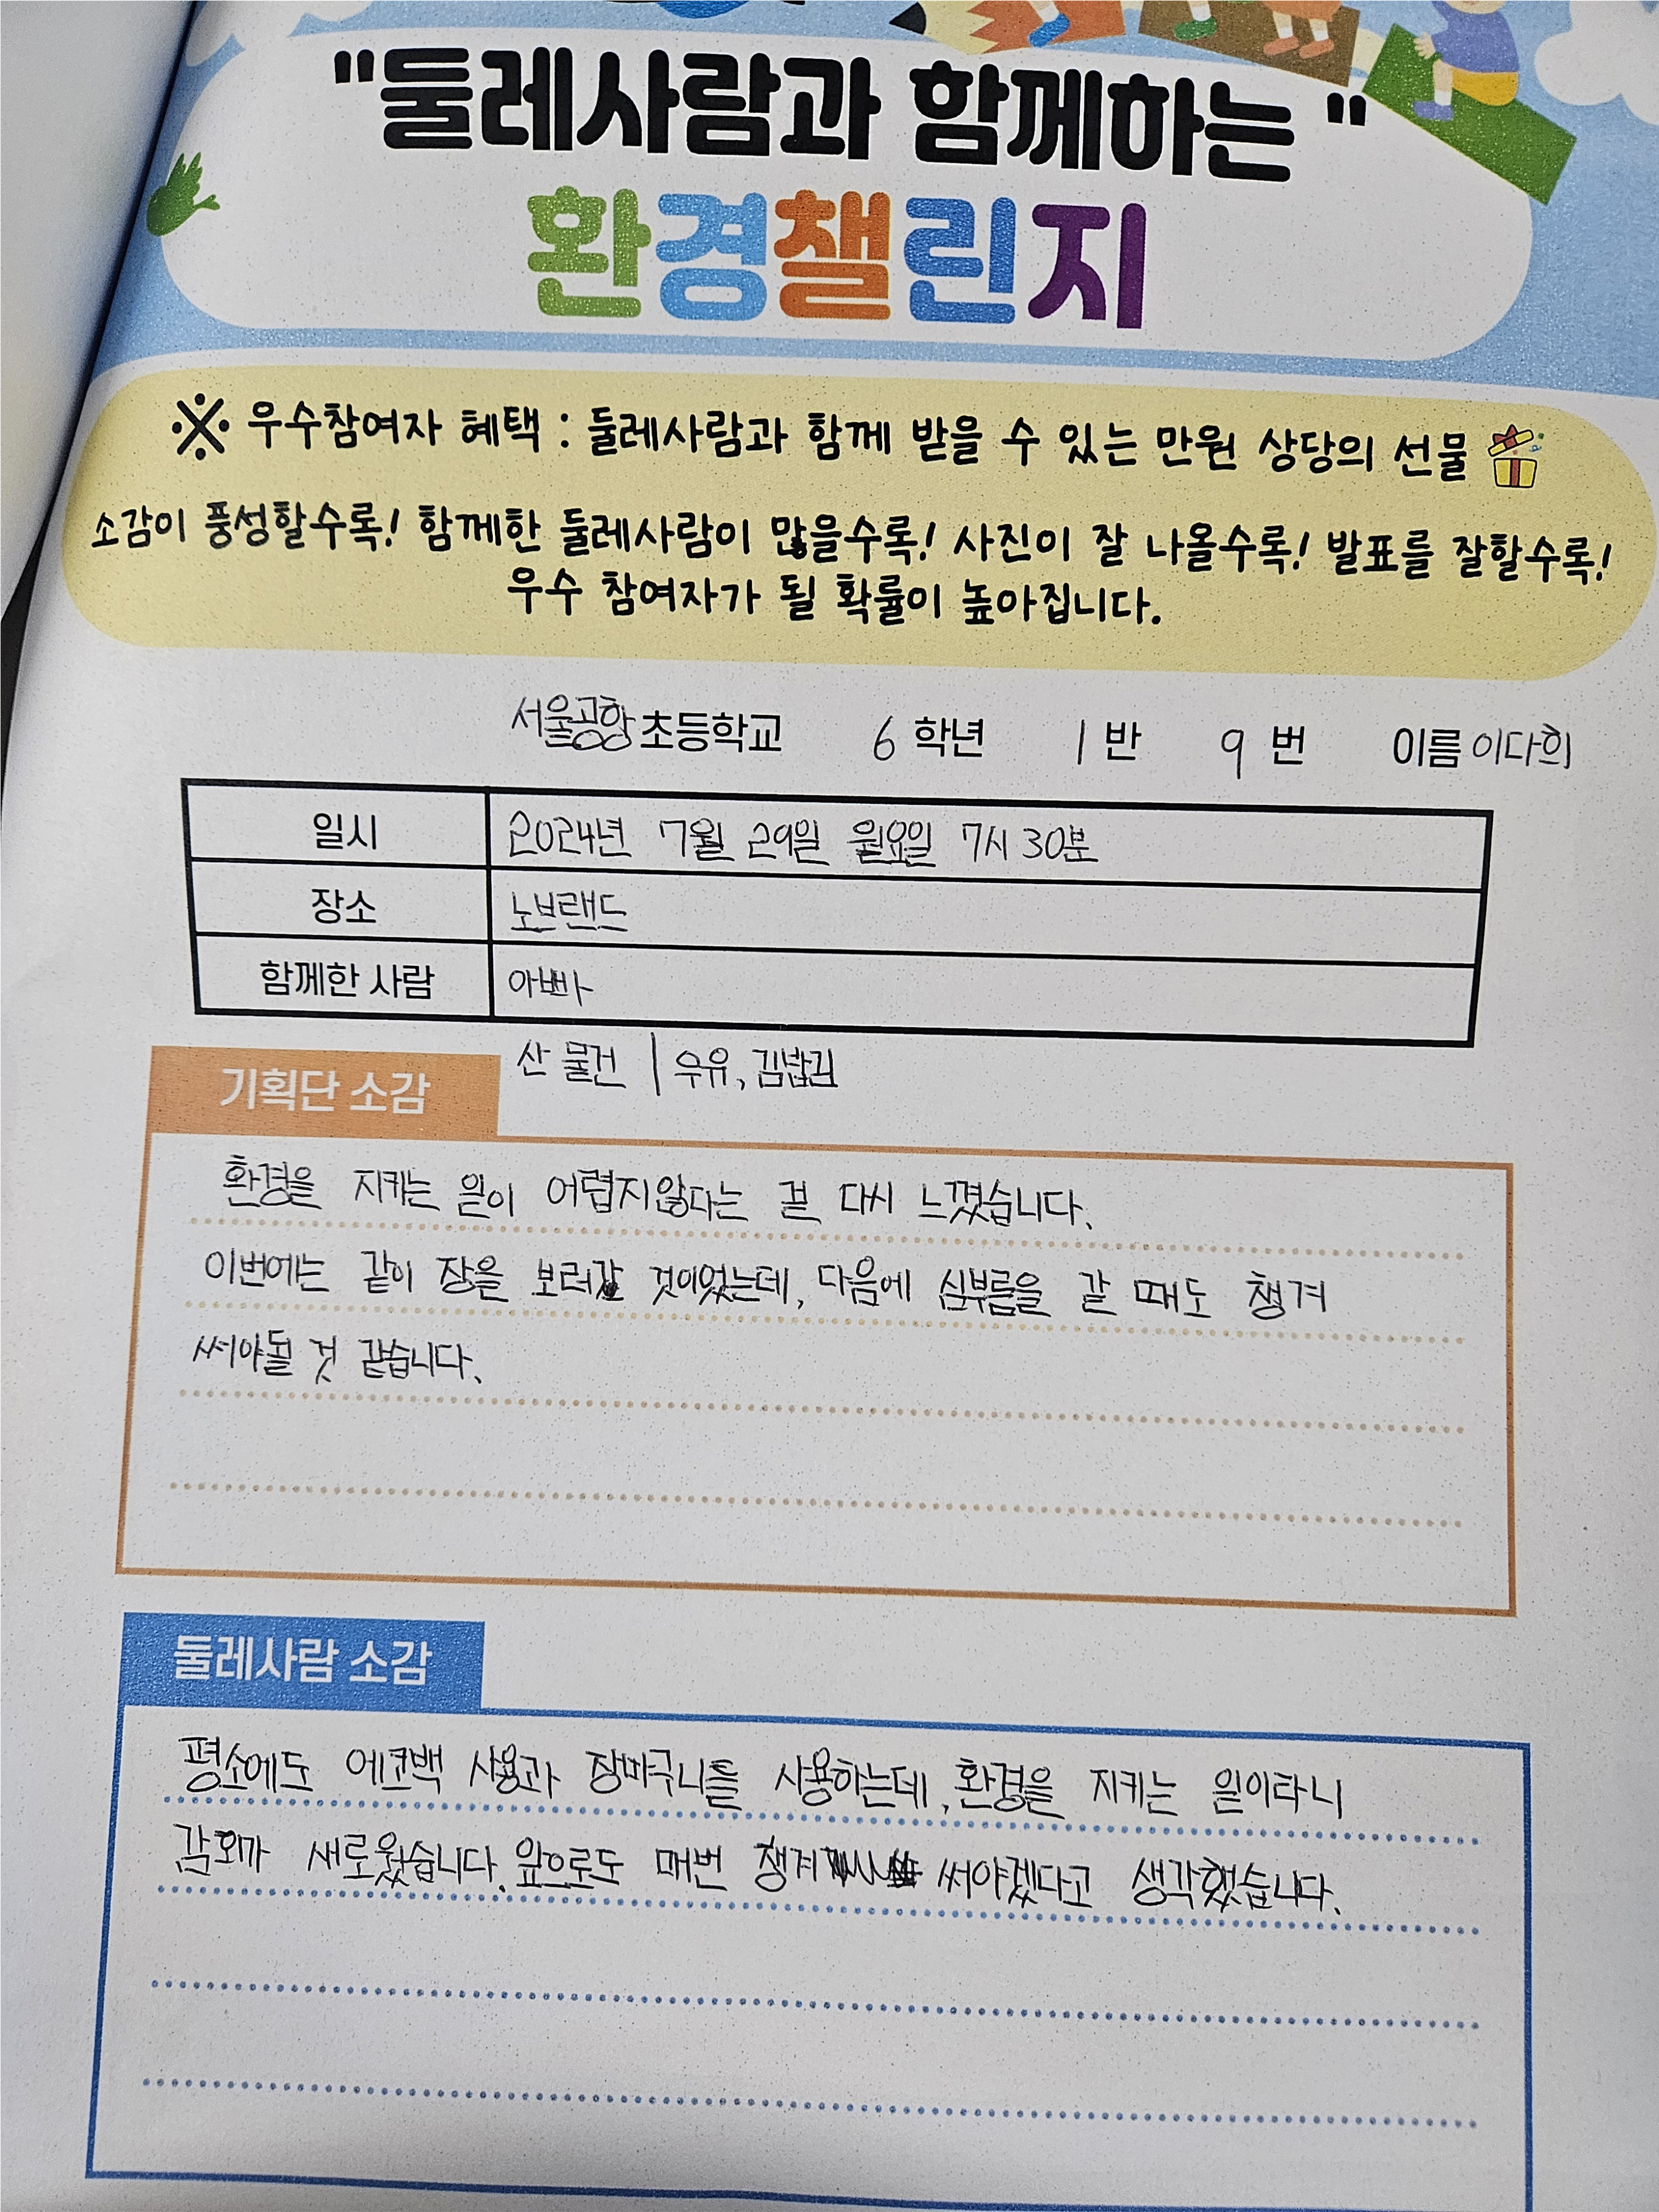 "둘레사람과 함께하는 "
환경챌린지
※ 우수참여자 혜택 : 둘레사람과 함께 받을 수 있는 만원 상당의 선물
소감이 풍성할수록! 함께한 둘레사람이 많을수록! 사진이 잘 나올수록! 발표를 잘할수록!
우수 참여자가 될 확률이 높아집니다.
서울공항초등학교 6 학년 1 반 9 번 이름 이다희
일시 2024년 7월 29일 월요일 7시 30분
장소 노브랜드
함께한 사람 아빠
산 물건 | 우유, 김밥김
기획단 소감
환경을 지키는 일이 어렵지않다는 걸 다시 느꼈습니다.
이번에는 같이 장을 보러갔 것이었는데, 다음에 심부름을 갈 때도 챙겨
써야될 것 같습니다.
둘레사람 소감
평소에도 에코백 사용과 장바구니를 사용하는데, 환경을 지키는 일이라니
감회가 새로웠습니다. 앞으로도 매번 챙겨 써야겠다고 생각했습니다.